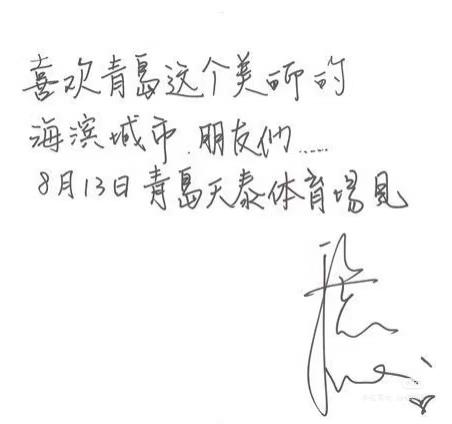 喜欢青岛这个美丽的
海滨城市.朋友们……
8月13日青岛天泰体育场见